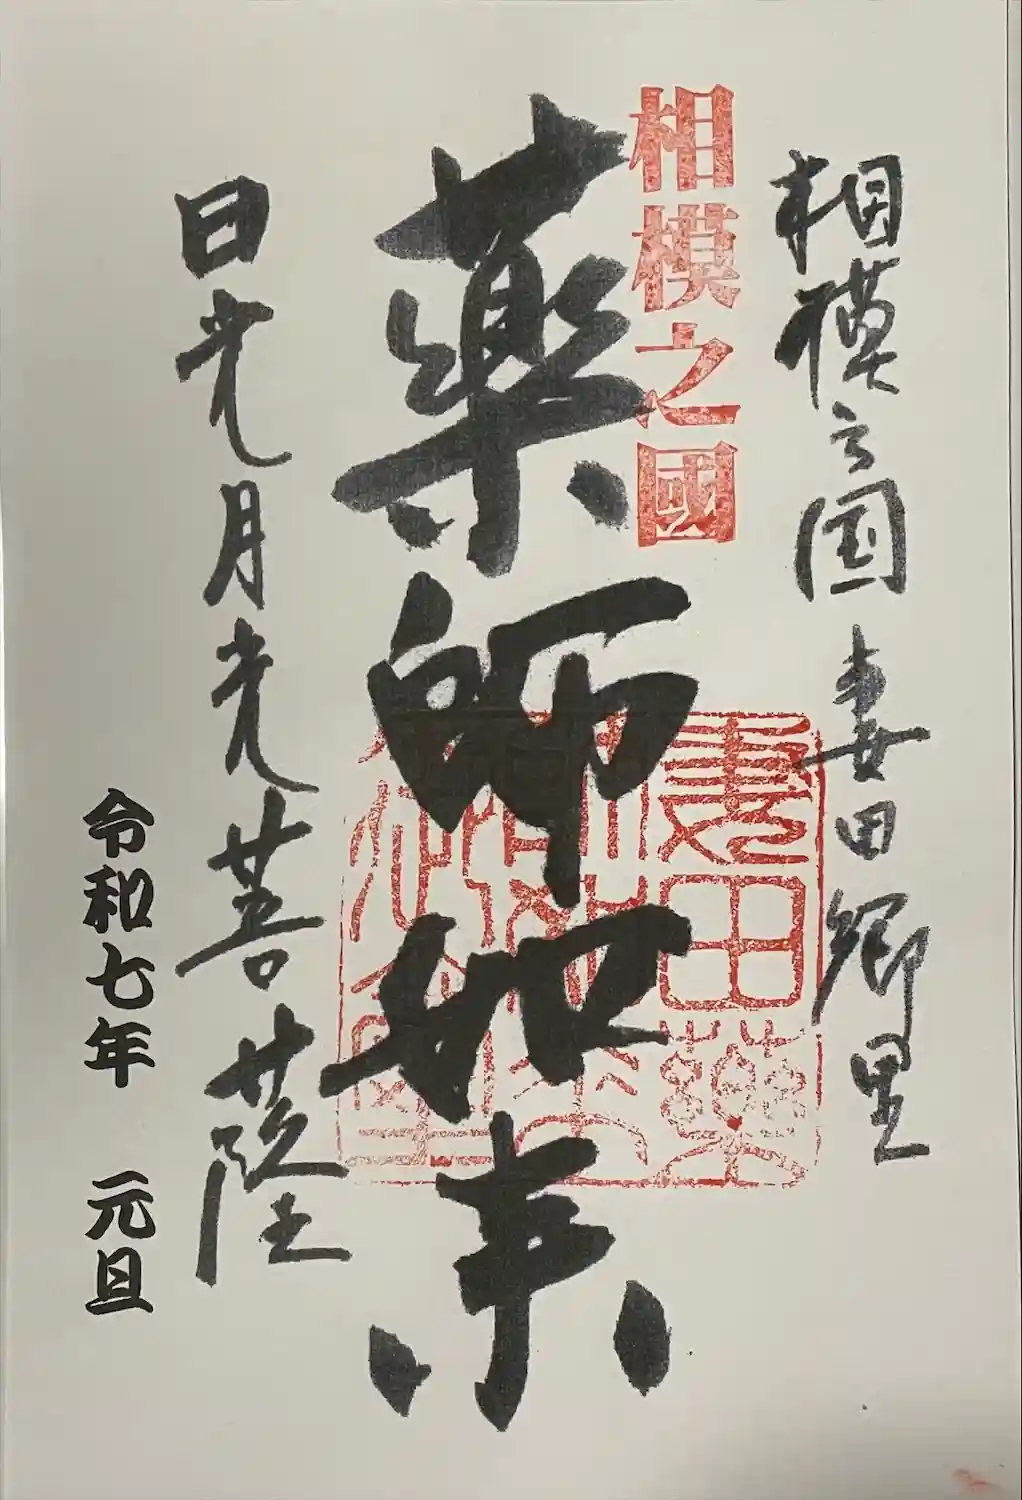 相模之国 妻田郷里
相模之國
薬師如来
日光月光菩薩
令和七年 元旦